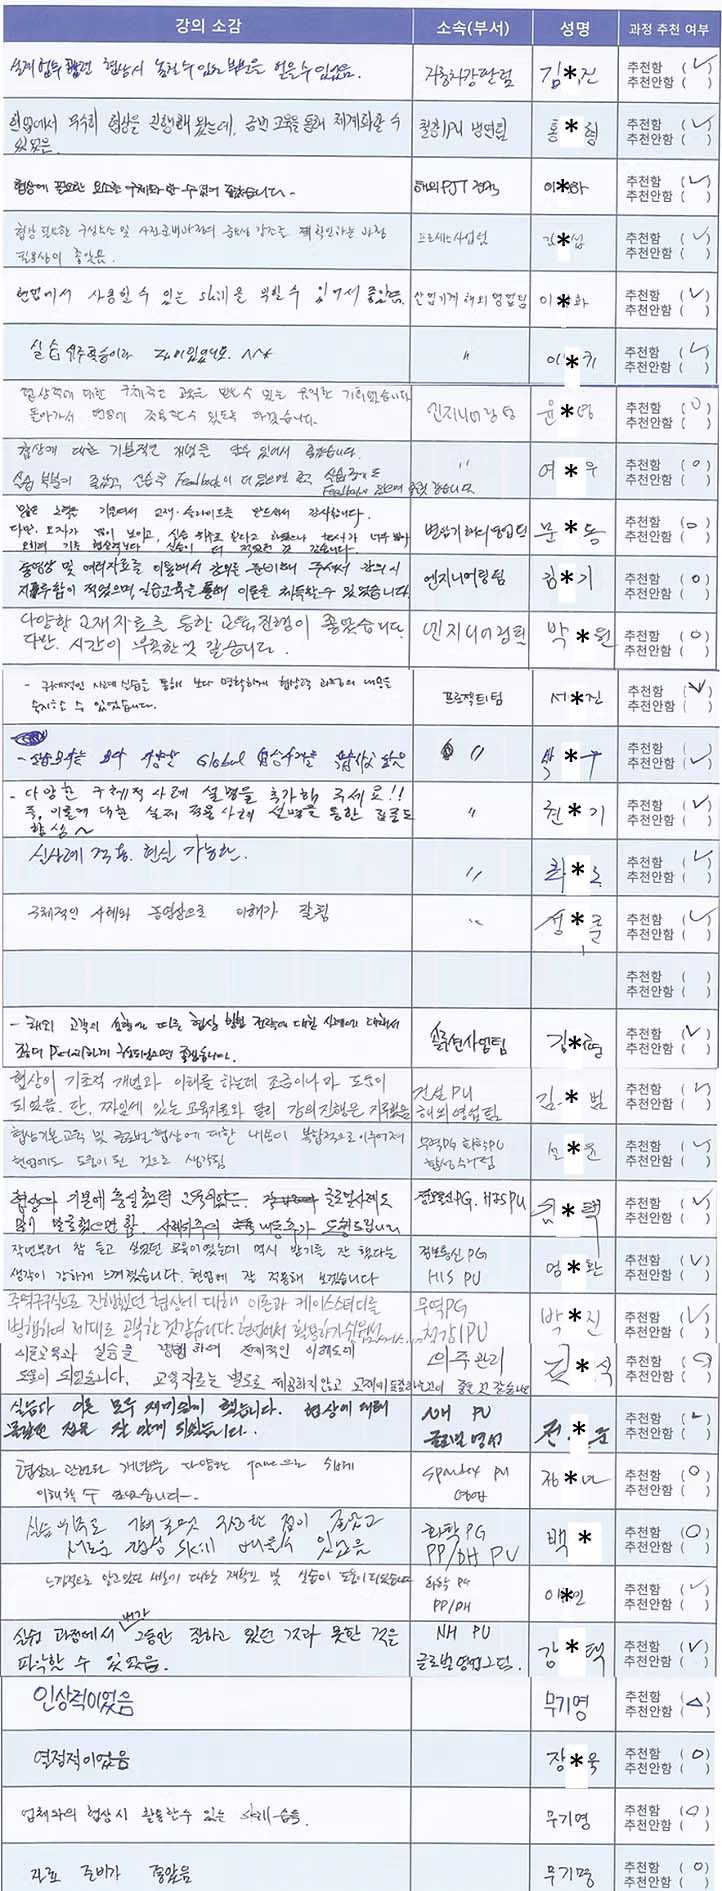 강의 소감 소속(부서) 성명 과정 추천 여부
실제 업무 관련 협상시 놓칠 수 있는 부분을 얻을 수 있었음. 자동차강판팀 김*진 추천함 (✓)
추천안함 ( )
현업에서 무수히 협상을 진행해 왔는데, 금번 교육을 통해 체계화할 수 철강1PU 냉연팀 홍*힘 추천함 (✓)
있었음. 추천안함 ( )
협상에 필요한 요소를 구체화 할 수 있어 좋았습니다. 해외PJT 이* 추천함 (✓)
추천안함 ( )
협상 필요한 구성요소 및 사전준비과정의 중요성 강조를 재확인하는 과정 프로세스사업팀 김*섭 추천함 (✓)
필요성이 좋았음. 추천안함 ( )
현업에서 사용할 수 있는 skill을 익힐 수 있어서 좋았음. 산업기계 해외영업팀 이*화 추천함 (✓)
추천안함 ( )
실습 위주 학습이라 재미있었네요. ^^* 〃 이*키 추천함 (✓)
추천안함 ( )
협상력에 대한 구체적인 교육을 받을 수 있는 유익한 기회였습니다 엔지니어링팀 윤*영 추천함 (○)
돌아가서 현업에 적용할 수 있도록 하겠습니다. 추천안함 ( )
협상에 대한 기본적인 개념을 알 수 있어서 좋았습니다. 〃 여*우 추천함 (○)
실습 부분이 좋았고 실습 후 Feedback이 더 있으면 좋고 실습중에도 추천안함 ( )
Feedback 있으면 좋을 듯 합니다.
많은 노력을 기울여서 교재·슬라이드를 만드셔서 감사합니다. 변압기해외영업팀 문*동 추천함 (○)
다만, 오자가 많이 보이고, 실습 위주로 한다고 하였으나 추천안함 ( )
동영상 및 여러자료를 이용해서 강의를 준비해 주셔서 강의시 엔지니어링팀 김*기 추천함 (○)
지루함이 적었으며, 실습교육을 통해 이론을 체득할 수 있었습니다. 추천안함 ( )
다양한 교재자료를 통한 교육진행이 좋았습니다. 엔지니어링팀 박*원 추천함 (○)
다만, 시간이 부족한것 같습니다. 추천안함 ( )
- 구체적인 사례 실습을 통해 보다 명확하게 협상력 과정의 내용을 프로젝트팀 서*진 추천함 (✓)
숙지할 수 있었습니다. 추천안함 ( )
Global 〃 박*우 추천함 ( )
추천안함 (✓)
- 다양한 구체적 사례 설명을 추가해 주세요!! 〃 권*기 추천함 (✓)
즉, 이론에 대한 실제 적용 사례 설명을 통한 집중도 추천안함 ( )
향상~
신사례 적용. 현실 가능한. 〃 최* 추천함 (✓)
추천안함 ( )
구체적인 사례와 동영상으로 이해가 잘됨 〃 성*준 추천함 (✓)
추천안함 ( )
추천함 ( )
추천안함 ( )
- 해외 고객의 성향에 따른 협상 방법 전략에 대한 사례에 대해서 솔루션사업팀 김*현 추천함 (✓)
좀더 Detail하게 구성되었으면 좋겠습니다. 추천안함 ( )
협상의 기초적 개념과 이해를 하는데 조금이나마 도움이 건설PU 김*범 추천함 (✓)
되었음. 단, 짜임새 있는 교육자료와 달리 강의진행은 지루했음 해외영업팀 추천안함 ( )
협상기본교육 및 글로벌협상에 대한 내용이 복합적으로 이루어져 무역PG 화학PU 윤 추천함 (✓)
현업에도 도움이 된 것으로 생각됨 합성수지팀 추천안함 ( )
협상의 기본에 충실했던 교육이었음. 글로벌사례도 정보통신PG. HIS PU 김*택 추천함 (✓)
많이 발굴했으면 함. 사례위주의 내용추가 도 부탁드립니다 추천안함 ( )
작년부터 참 듣고 싶었던 교육이었는데 역시 받기를 잘 했다는 정보통신PG 엄*환 추천함 (✓)
생각이 강하게 느껴졌습니다. 현업에 잘 적용해 보겠습니다 HIS PU 추천안함 ( )
주먹구구식으로 진행했던 협상에 대해 이론과 케이스스터디를 무역PG 박*진 추천함 (✓)
병행하여 제대로 공부한 것 같습니다. 현업에서 활용하기 쉬운 철강1PU 추천안함 ( )
이론교육과 실습을 병행하여 전체적인 이해도에 외주관리 김*석 추천함 (○)
도움이 되었습니다. 교육자료는 별도로 제공하지 않고 교재에 추천안함 ( )
실습과 이론 모두 재미있게 했습니다. 협상에 대해 NH PU 전*준 추천함 (✓)
몰랐던 점을 잘 알게 되었습니다. 글로벌영업 추천안함 ( )
협상과 관련된 개념을 다양한 game으로 쉽게 spandex PU 정* 추천함 (○)
이해할 수 있었습니다. 영업 추천안함 ( )
실습위주로 강의 포맷 구성한 점이 좋았고 화학PG 백* 추천함 (○)
새로운 협상 skill 배울 수 있었음 PP/DH PU 추천안함 ( )
느낌적으로 알고있던 대한 재확인 및 실습이 도움이 되었습니다 화학 PG 이*민 추천함 (✓)
PP/DH 추천안함 ( )
실습 과정에서 번갈아 그동안 잘하고 있던 것과 못한 것을 NH PU 강*택 추천함 (✓)
파악할 수 있었음. 글로벌영업2팀. 추천안함 ( )
인상적이었음 무기명 추천함 (△)
추천안함 ( )
열정적이었음 장*욱 추천함 (○)
추천안함 ( )
업체와의 협상시 활용할 수 있는 skill 습득. 무기명 추천함 (○)
추천안함 ( )
자료 준비가 좋았음 무기명 추천함 (○)
추천안함 ( )